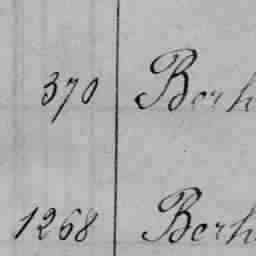 370 Berh
1268 Berh